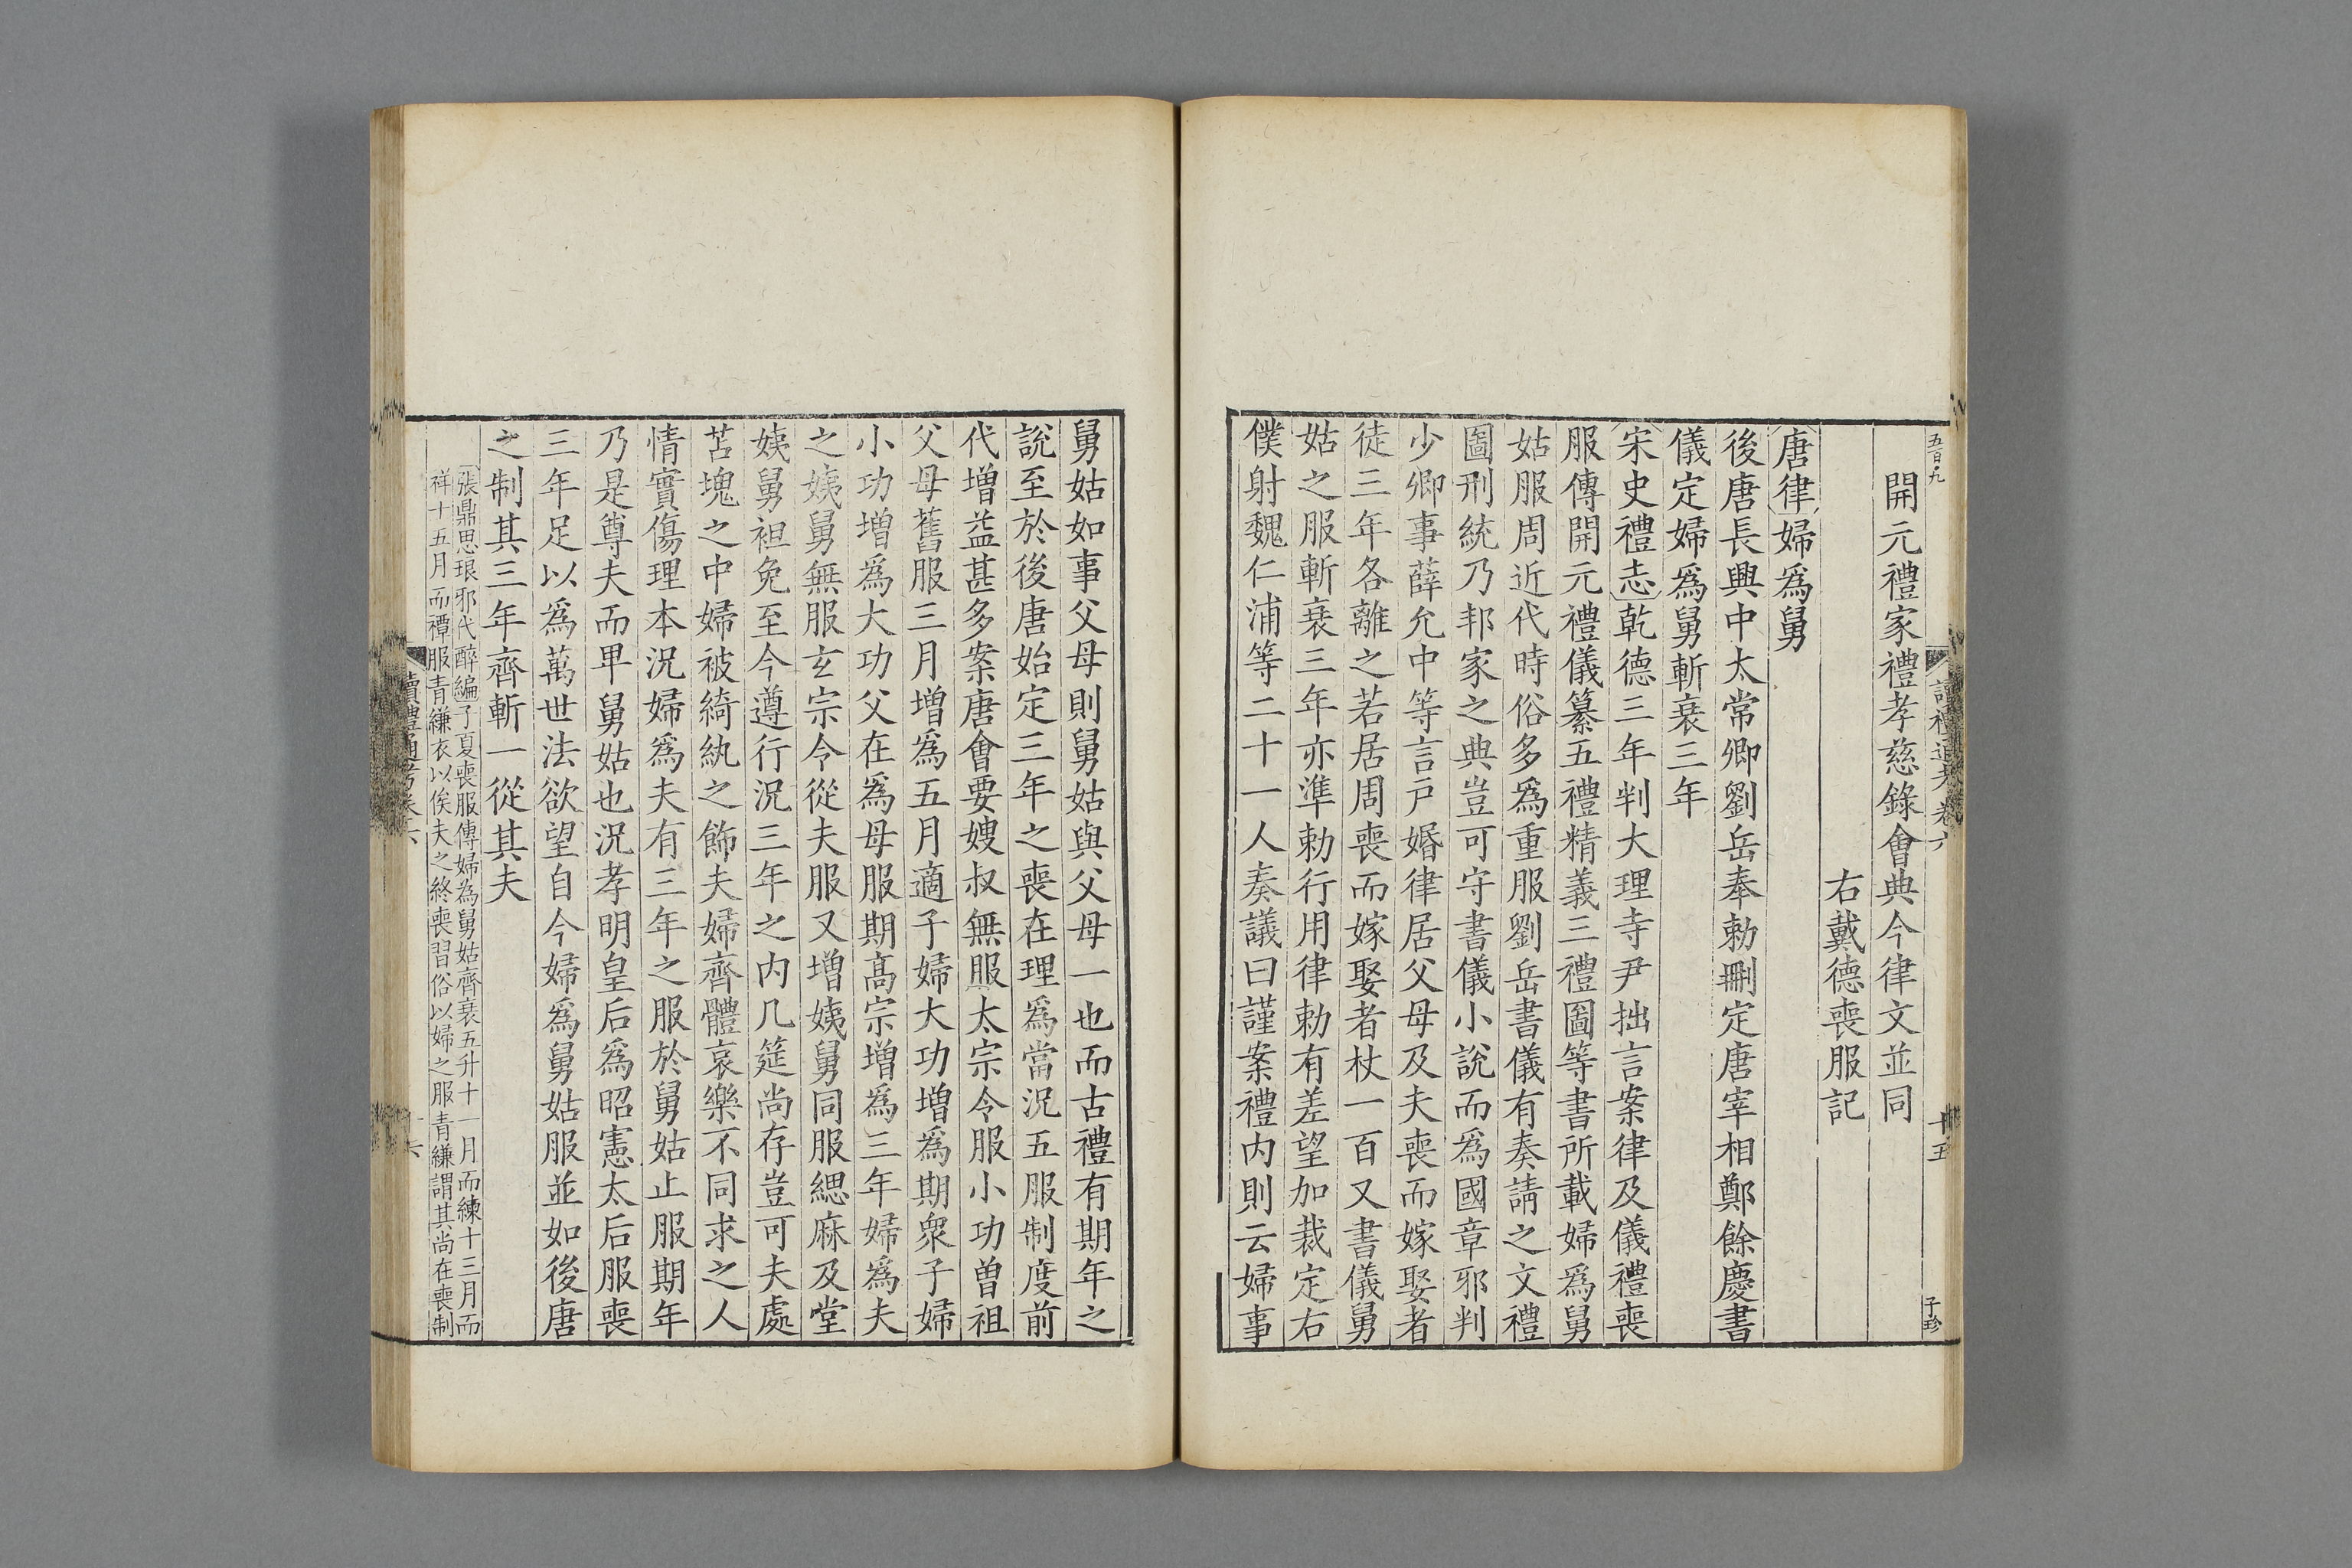 五百九
讀禮通考卷六
十五
子珍
開元禮家禮孝慈錄會典今律文並同
右戴德喪服記
唐律婦爲舅
後唐長興中太常卿劉岳奉勅刪定唐宰相鄭餘慶書
儀定婦爲舅斬衰三年
宋史禮志乾德三年判大理寺尹拙言案律及儀禮喪
服傳開元禮儀纂五禮精義三禮圖等書所載婦爲舅
姑服周近代時俗多爲重服劉岳書儀有奏請之文禮
圖刑統乃邦家之典豈可守書儀小說而爲國章邪判
少卿事薛允中等言戸婚律居父母及夫喪而嫁娶者
徒三年各離之若居周喪而嫁娶者杖一百又書儀舅
姑之服斬衰三年亦準勅行用律勅有差望加裁定右
僕射魏仁浦等二十一人奏議曰謹案禮内則云婦事
舅姑如事父母則舅姑與父母一也而古禮有期年之
說至於後唐始定三年之喪在理爲當況五服制度前
代增益甚多案唐會要嫂叔無服太宗令服小功曾祖
父母舊服三月增爲五月適子婦大功增爲期衆子婦
小功增爲大功父在爲母服期高宗增爲三年婦爲夫
之姨舅無服玄宗令從夫服又增姨舅同服緦麻及堂
姨舅袒免至今遵行況三年之内几筵尚存豈可夫處
苫塊之中婦被綺紈之飾夫婦齊體哀樂不同求之人
情實傷理本況婦爲夫有三年之服於舅姑止服期年
乃是尊夫而卑舅姑也況孝明皇后爲昭憲太后服喪
三年足以爲萬世法欲望自今婦爲舅姑服並如後唐
之制其三年齊斬一從其夫
張鼎思琅邪代醉編子夏喪服傳婦為舅姑齊衰五升十一月而練十三月而
祥十五月而禫服青縑衣以俟夫之終喪習俗以婦之服青縑謂其尚在喪制
讀禮通考卷六
十六